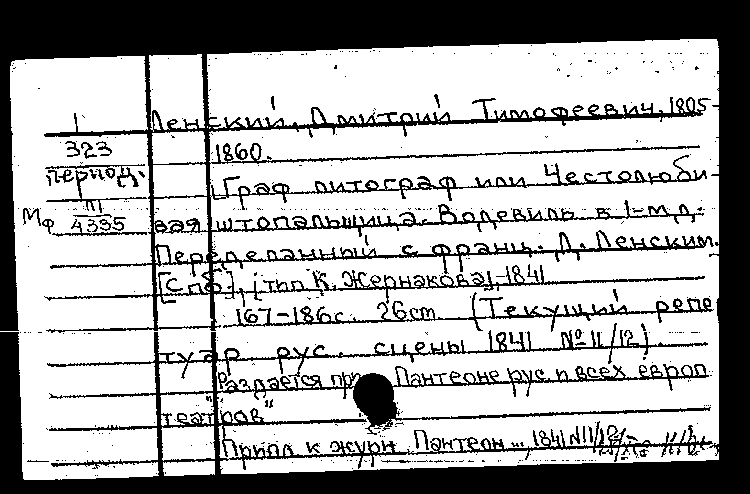 1 Ленский, Дмитрий Тимофеевич, 1805-
323 1860.
период. Граф литограф или Честолюби-
Мф П1/4335 вая штопальщица. Водевиль в 1-м д.
Переделанный с франц. Д. Ленским.
[Спб], [тип К. Жернакова], 1841
167-186с. 26см (Текущий репе
туар рус. сцены 1841 № 11/12).
"Раздается при Пантеоне рус и всех европ
театров"
Прилож к журн Пантеон..., 1841 N 11/12